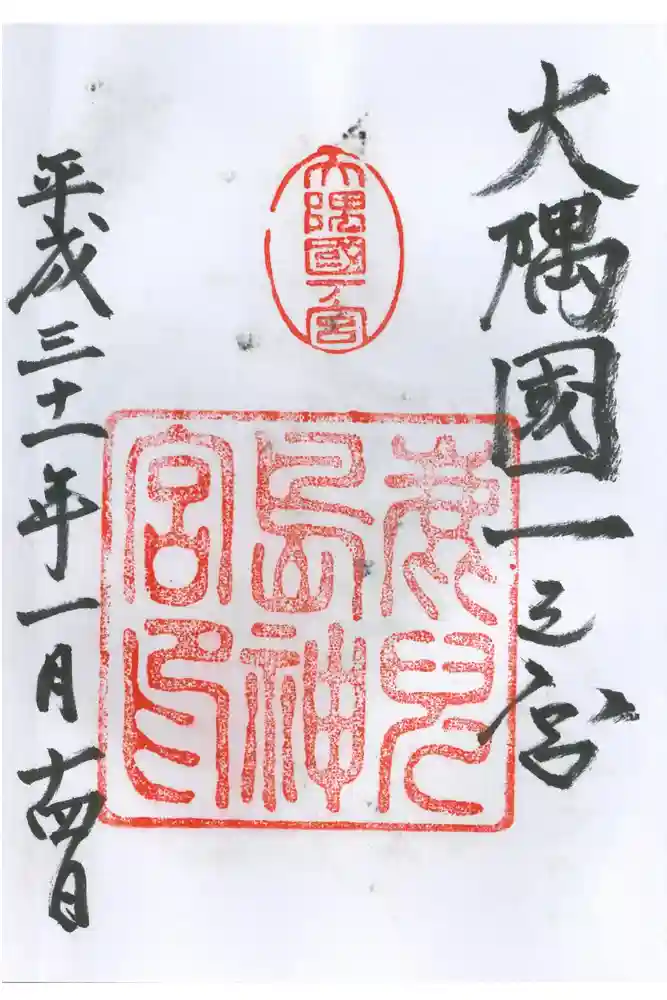 大隅國一之宮
大隅國一ノ宮
鹿兒
島神
宮印
平成三十一年一月十四日